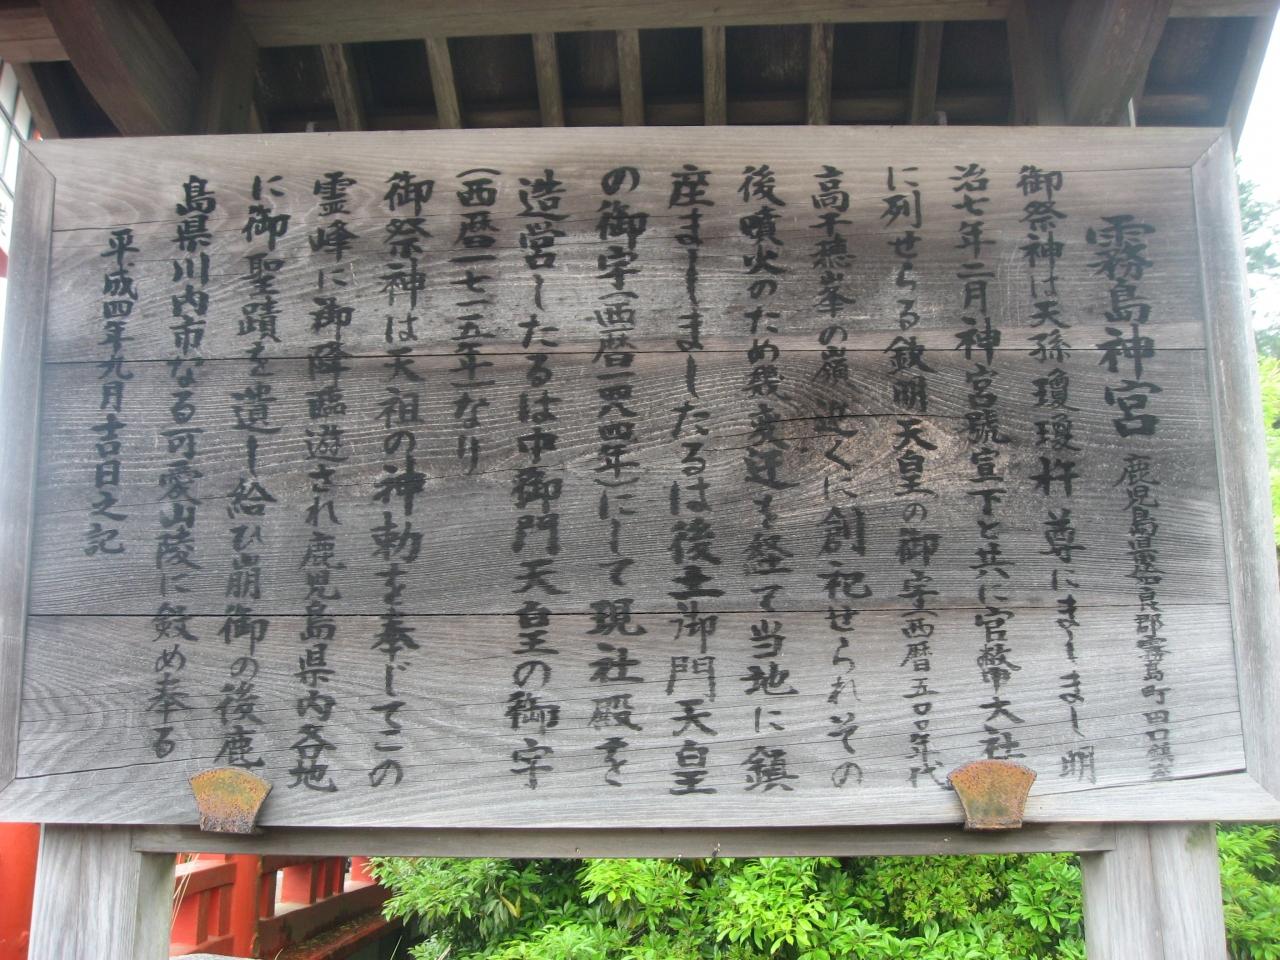 霧島神宮 鹿児島県姶良郡霧島町田口鎮座
御祭神は天孫瓊瓊杵尊にましまし明
治七年二月神宮號宣下と共に官幣大社
に列せらる欽明天皇の御宇(西暦五四〇年代
高千穂峯の嶺近くに創祀せられその
後噴火のため幾変迁を経て当地に鎮
産ましましたるは後土御門天皇
の御宇(西暦一四八四年)にして現社殿を
造営したるは中御門天皇の御宇
(西暦一七一五年)なり
御祭神は天祖の神勅を奉じてこの
霊峰に御降臨遊され鹿児島県内各地
に御聖蹟を遺し給ひ崩御の後鹿
島県川内市なる可愛山陵に斂め奉る
平成四年九月吉日之記